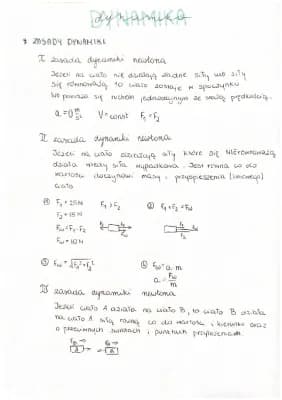 DYNAMIKA
* ZASADY DYNAMIKI
I zasada dynamiki newtona
Jeżeli na ciało nie działają żadne siły lub siły
się równoważą to ciało zostaje w spoczynku
lub porusza się ruchem jednostajnym ze stałą prędkością.
a=0 m/s² V=const F₁=F₂
II zasada dynamiki newtona
Jeżeli na ciało działają siły które się NIErównoważą
działa wtedy siła wypadkowa. Jest równa co do
wartości iloczynowi masy i przyspieszenia
ciała
① F₁=25N F₁>F₂ ② F₁+F₂=Fw
F₂=15N
Fw=F₁-F₂
Fw=10N
③ Fw=√F₁²+F₂² ④ Fw=a·m
a=Fw/m
III zasada dynamiki newtona
Jeżeli ciało A działa na ciało B, to ciało B działa
na ciało A siłą równą co do wartości i kierunku oraz
o przeciwnych zwrotach i punktach przyłożenia.
A B